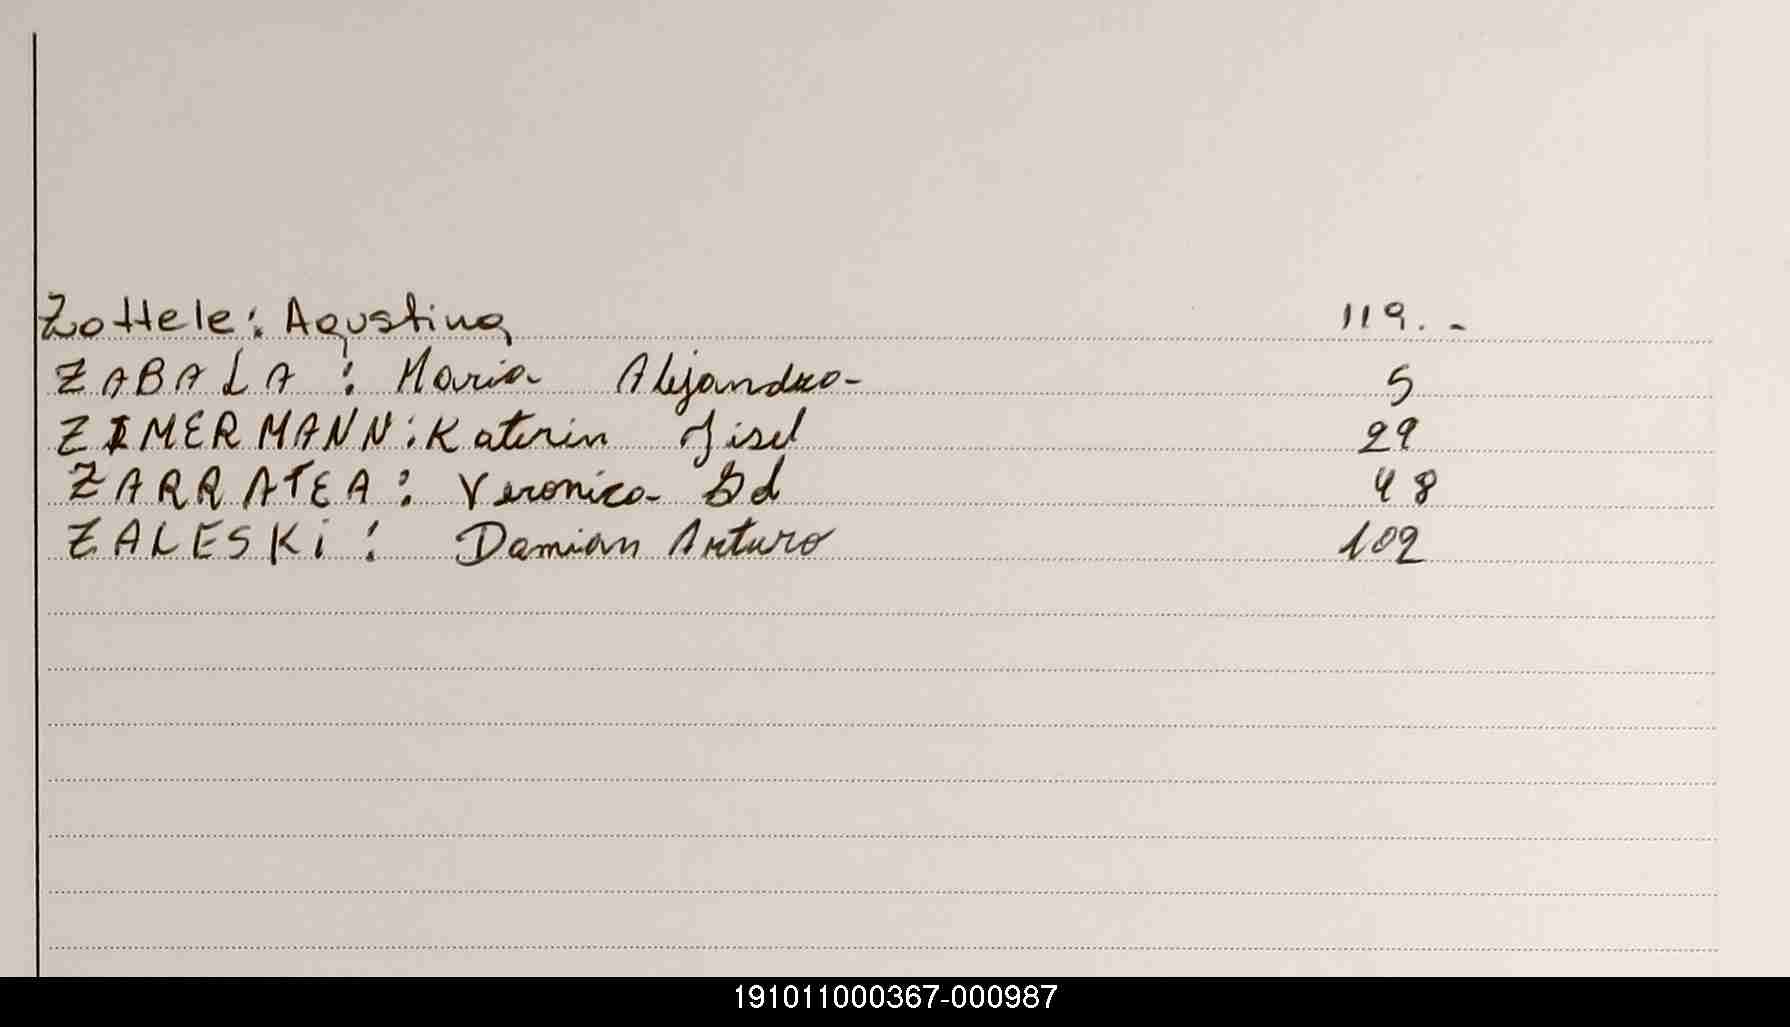 Zottele: Agustina 119.-
ZABALA: Maria Alejandra- 5
ZIMERMANN: Katerin Jisel 29
ZARRATEA: Veronica- 48
ZALESKi: Damian Arturo 102
191011000367-000987